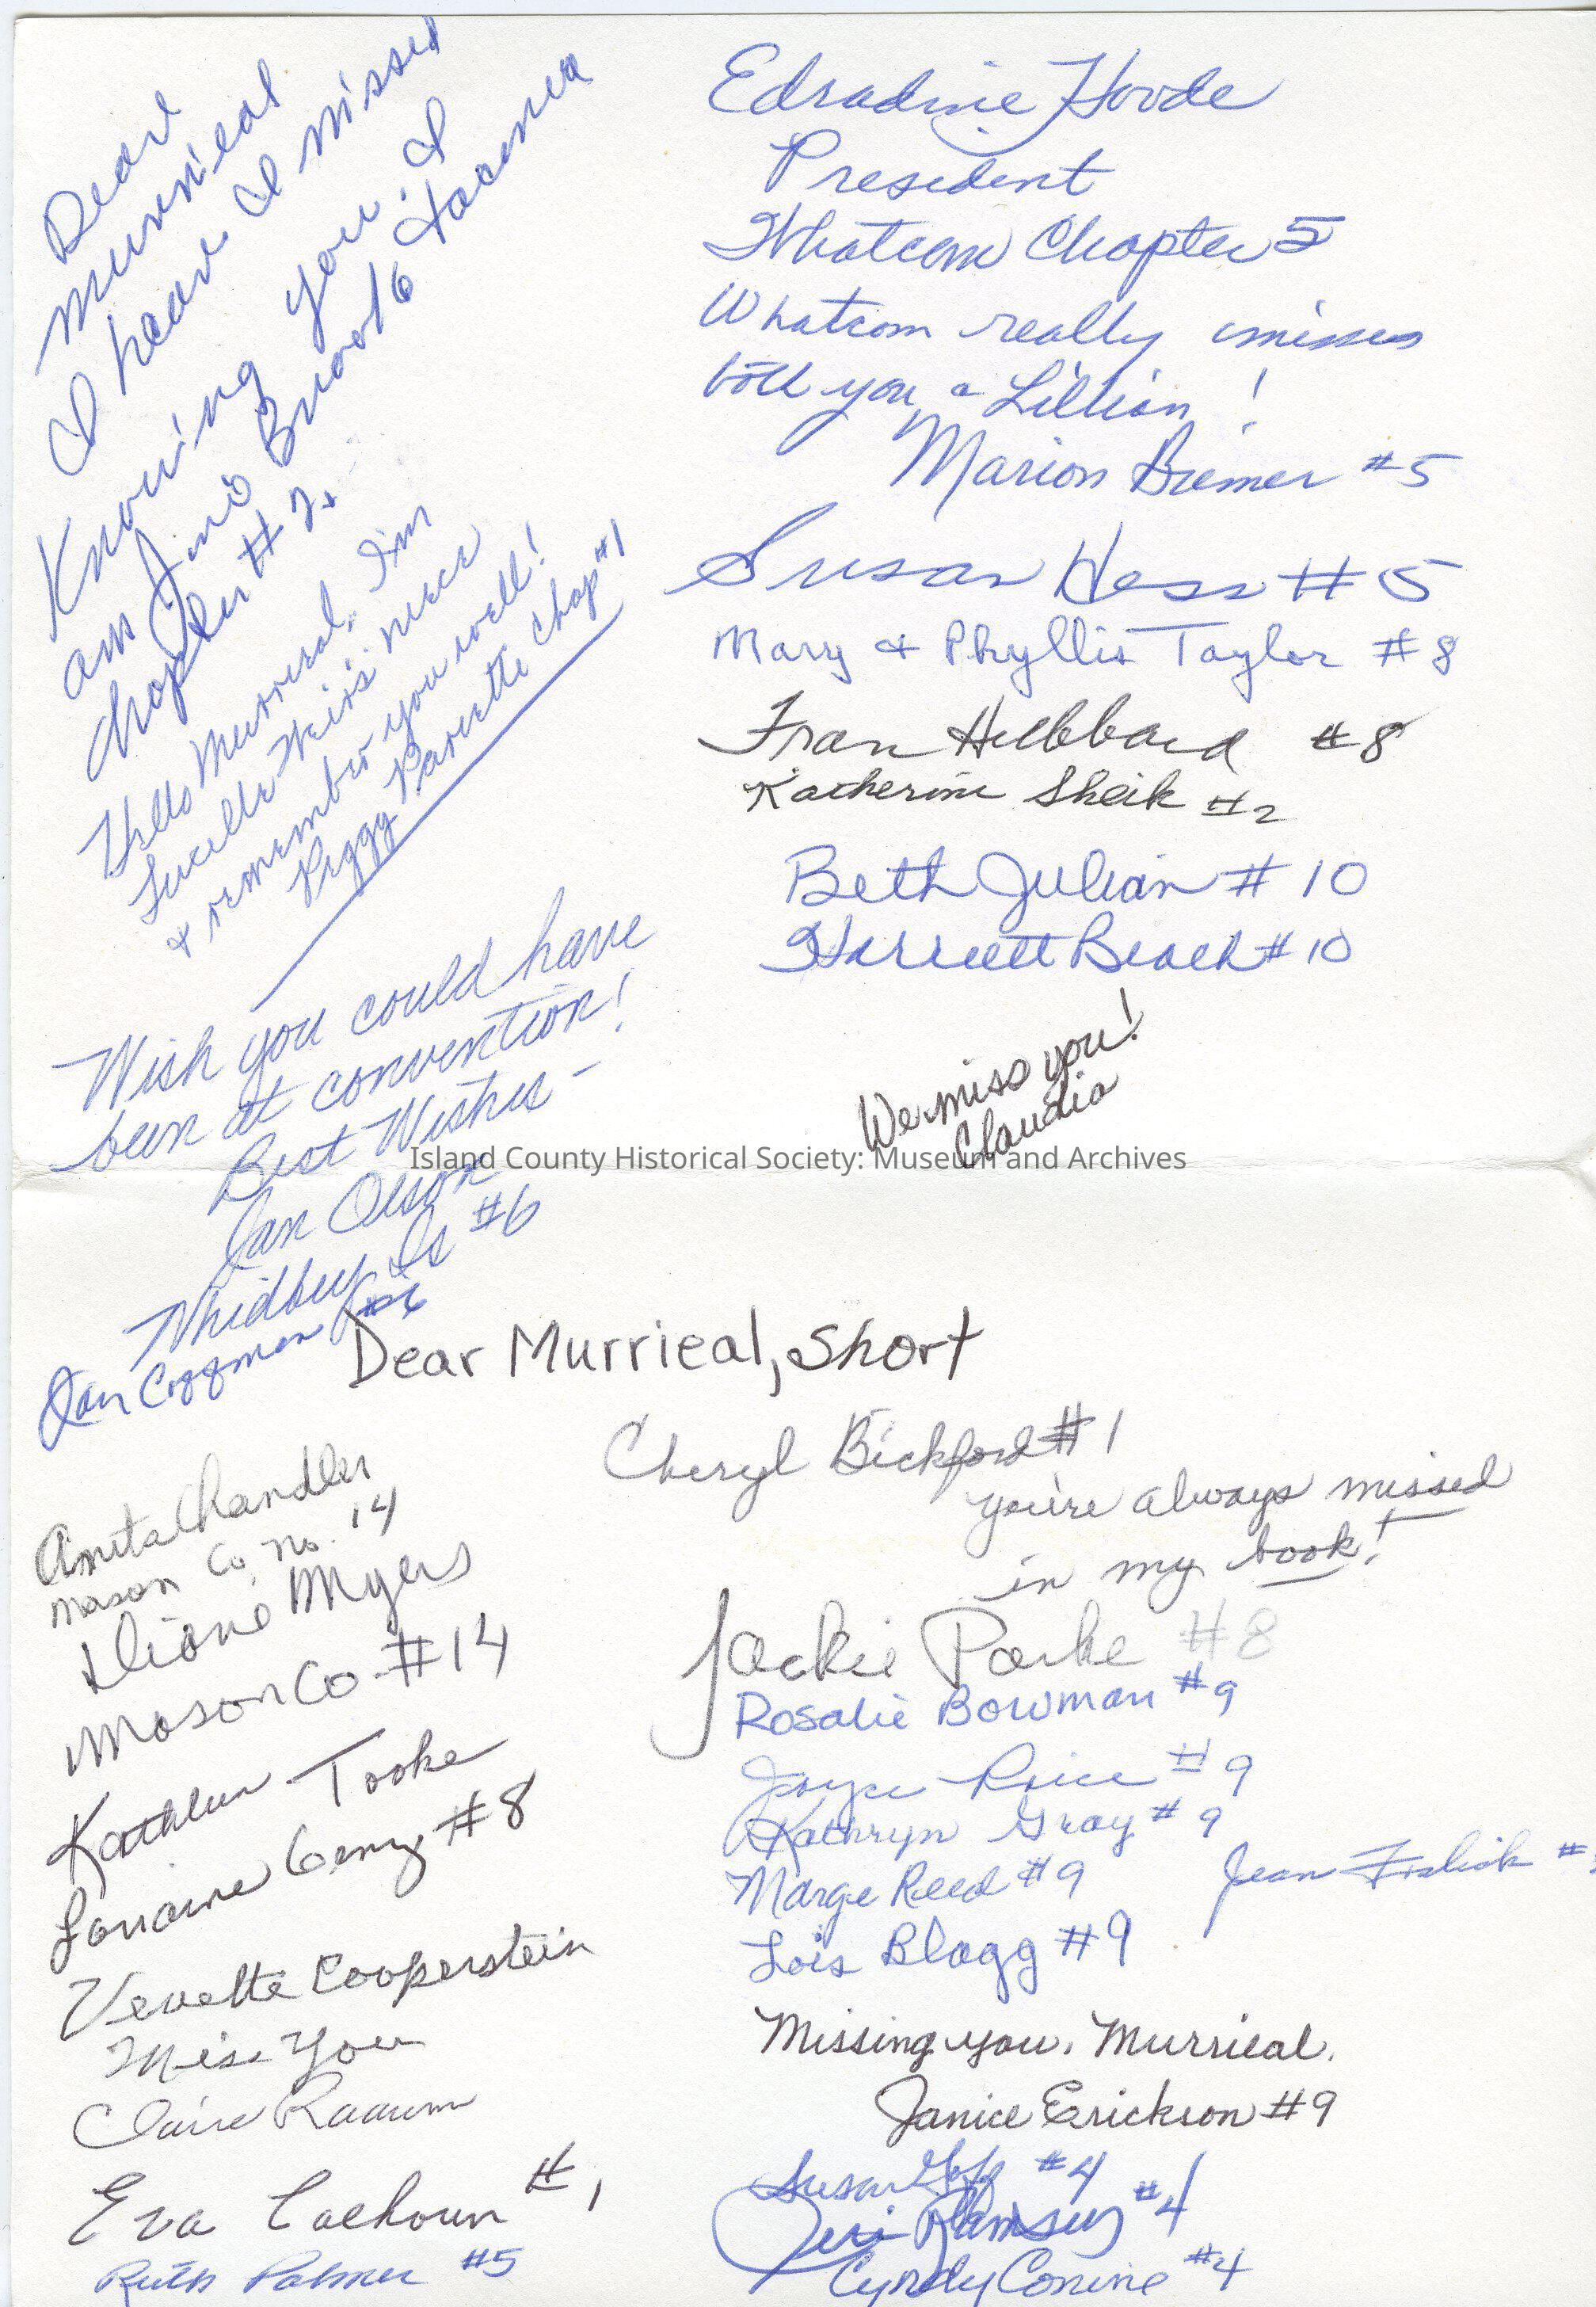 Dear
Murrieal
I hear I missed
Knowing you. I
am Jini Brook Tacoma
chapter # 2.
Hello Murrieal, I'm
Lucille Weir's niece
& remember you well!
Peggy Parette Chap #1
Wish you could have
been at convention!
Best Wishes -
Jan Olson
Whidbey Is #6
Jan Coffman #6
Edradine Hovde
President
Whatcom Chapter 5
Whatcom really misses
both you & Lillian!
Marion Bremer #5
Susan Hess #5
Mary & Phyllis Taylor #8
Fran Hubbard #8
Katherine Sheik #2
Beth Julian #10
Harriett Beach #10
We miss you!
Claudia
Island County Historical Society: Museum and Archives
Dear Murrieal, Short
Anita Chandler
Mason Co. No. 14
Diane Myers
Mason Co #14
Kathleen Tooke
Lorraine #8
Venette Cooperstein
Miss You
Claire Raaum
Eva Calhoun #1
Ruth Palmer #5
Cheryl Bickford #1
you're always missed
in my book!
Jackie Parke #8
Rosalie Bowman #9
Joyce Price #9
Kathryn Gray #9
Marge Reed #9
Jean #
Lois Blagg #9
Missing you, Murrieal.
Janice Erickson #9
Susan Goff #4
Jeri Ramsey #4
Cyndy Conine #4